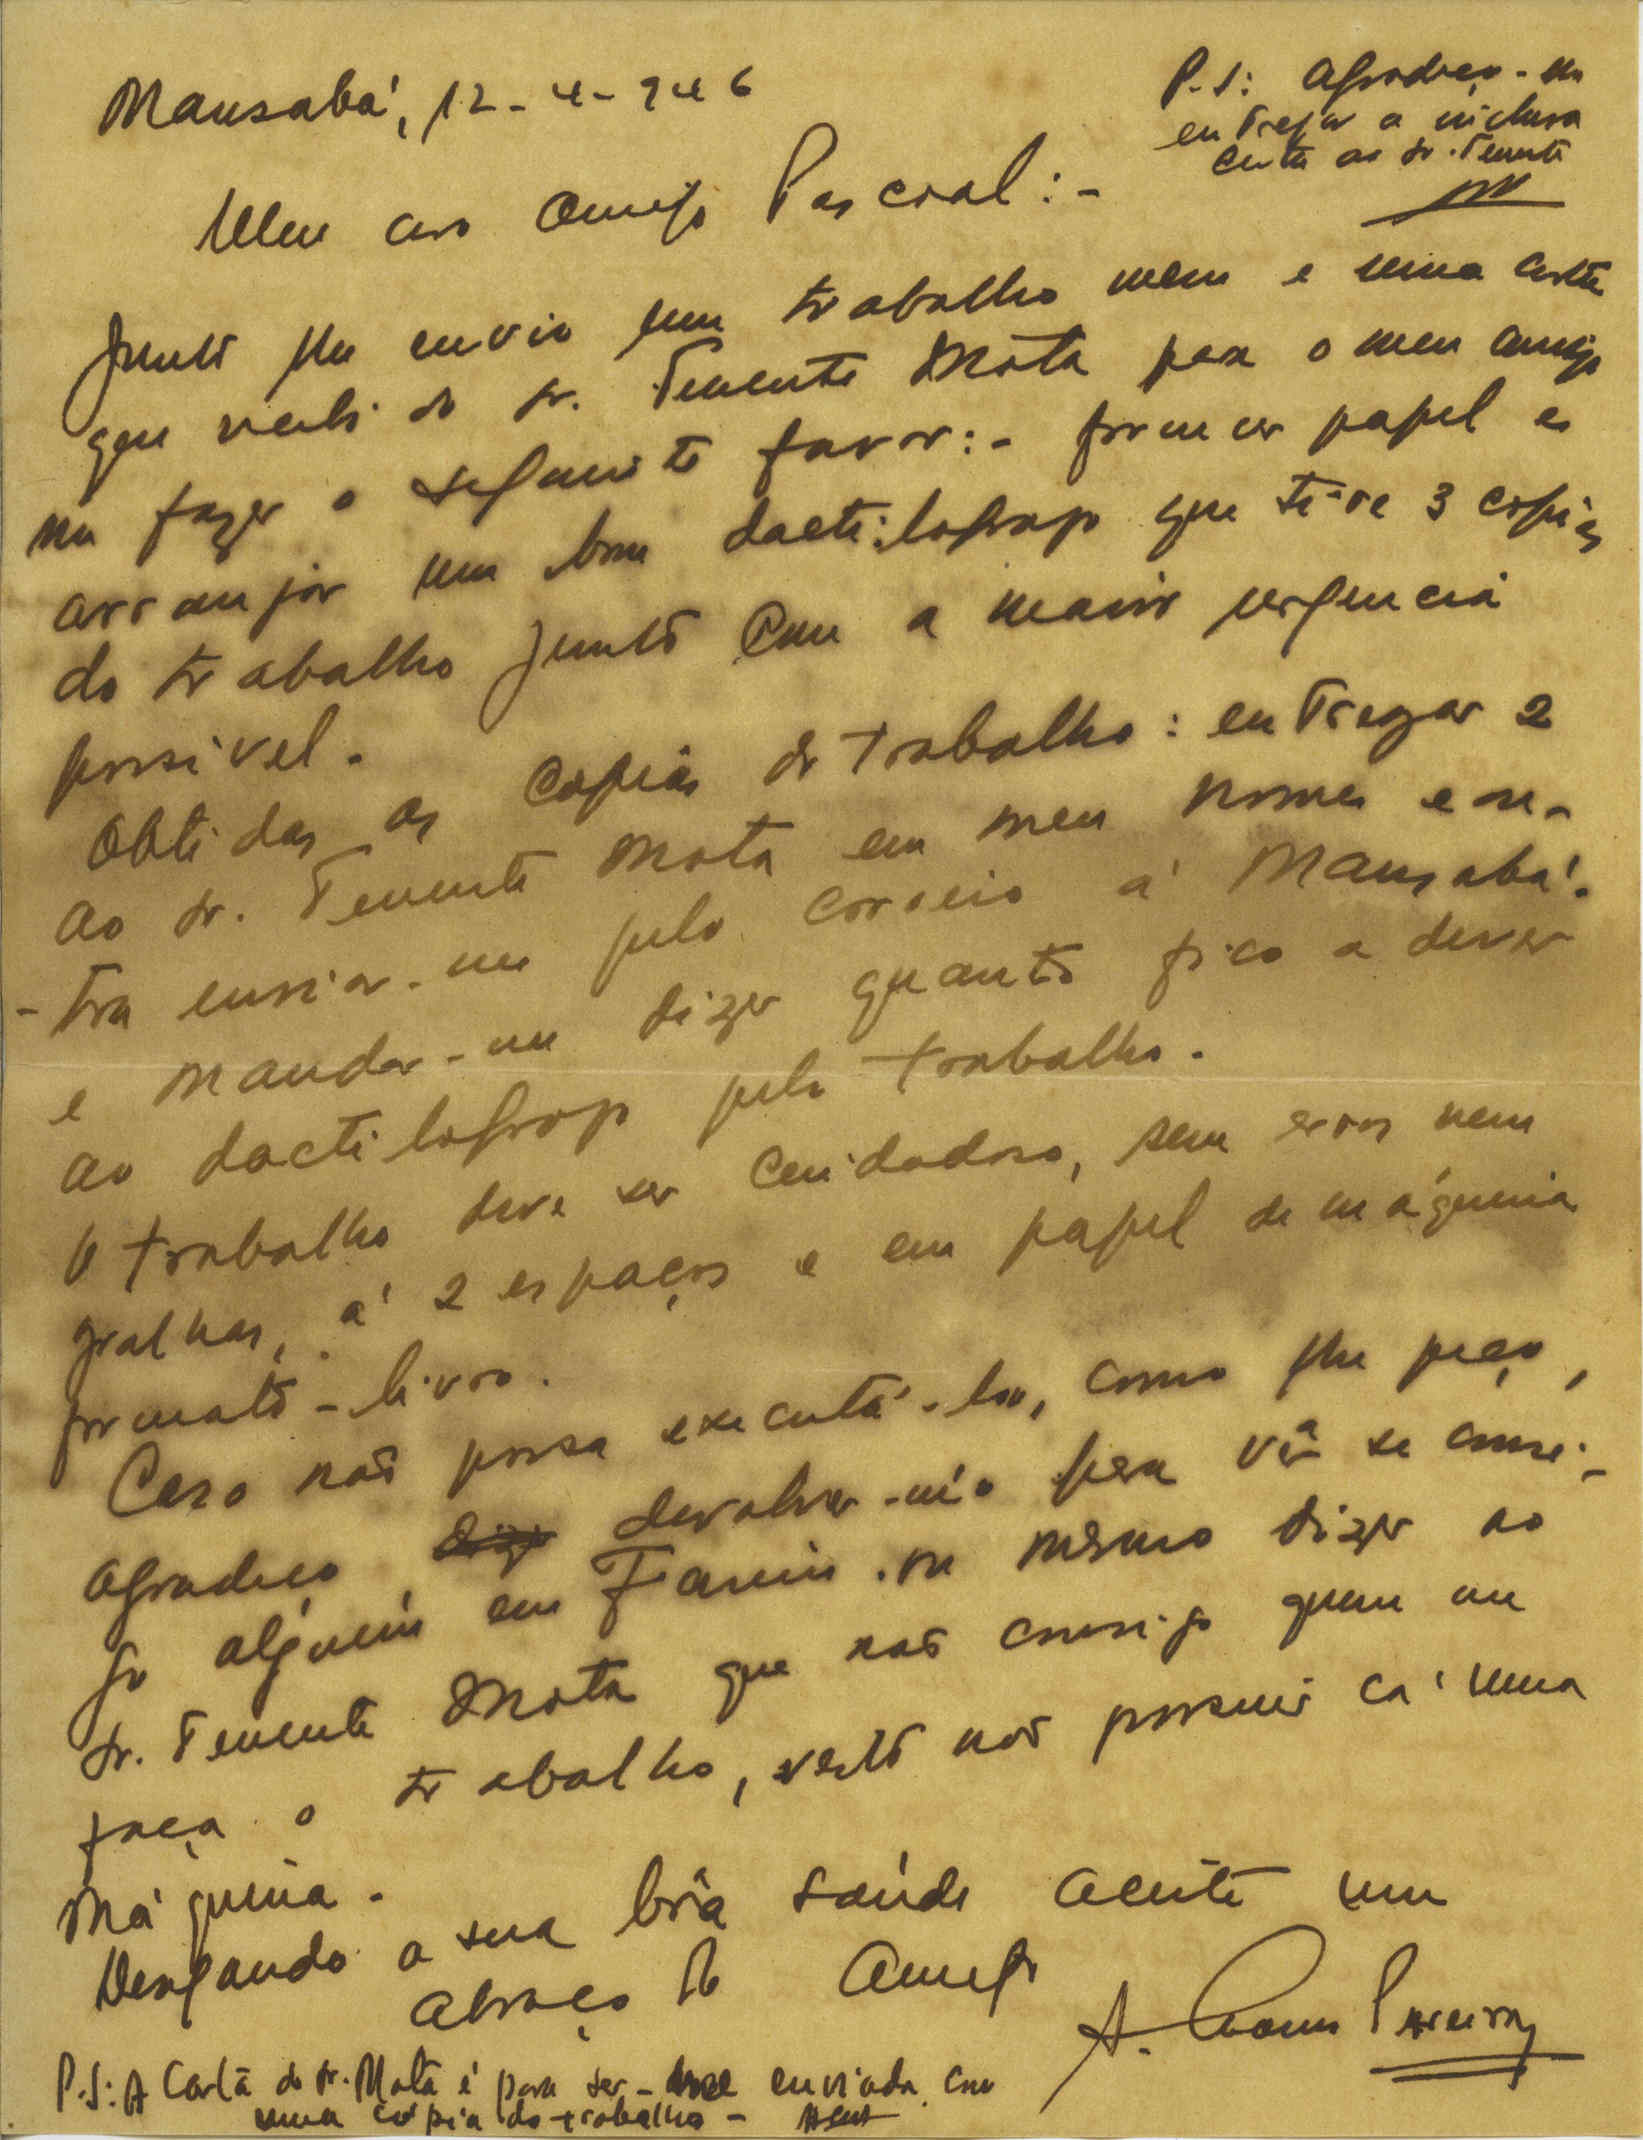 Mansabá, 12-4-946
P.S: Agradeço-lhe
entregar a inclusa
carta ao sr. Tenente
Meu caro Amigo Pascoal:-
Junto lhe envio um trabalho meu e uma carta
que recebi do sr. Tenente Mota para o meu amigo
me fazer o seguinte favor:- fornecer papel e
arranjar um bom dactilógrafo que tire 3 copias
do trabalho junto com a maior urgencia
possivel.
Obtidas as copias do trabalho: entregar 2
ao sr. Tenente Mota em meu nome e ou-
-tra enviar-me pelo correio a Mansabá.
e mandar-me dizer quanto fico a dever
ao dactilografo pelo trabalho.
O trabalho deve ser cuidadoso, sem erros nem
gralhas, á 2 espaços e em papel de máquina
formato-livro.
Caso não possa executá-lo, como lhe peço,
agradeço, devolver-mo para vêr se consi-
go alguém em Farim ou mesmo dizer ao
sr. Tenente Mota que não consigo quem me
faça o trabalho, visto não possuir cá uma
máquina.
Desejando a sua bôa saúde aceite um
abraço do Amigo
A. Pereira
P.S: A Carta do sr. Mota é para ser enviada com
uma cópia do trabalho -